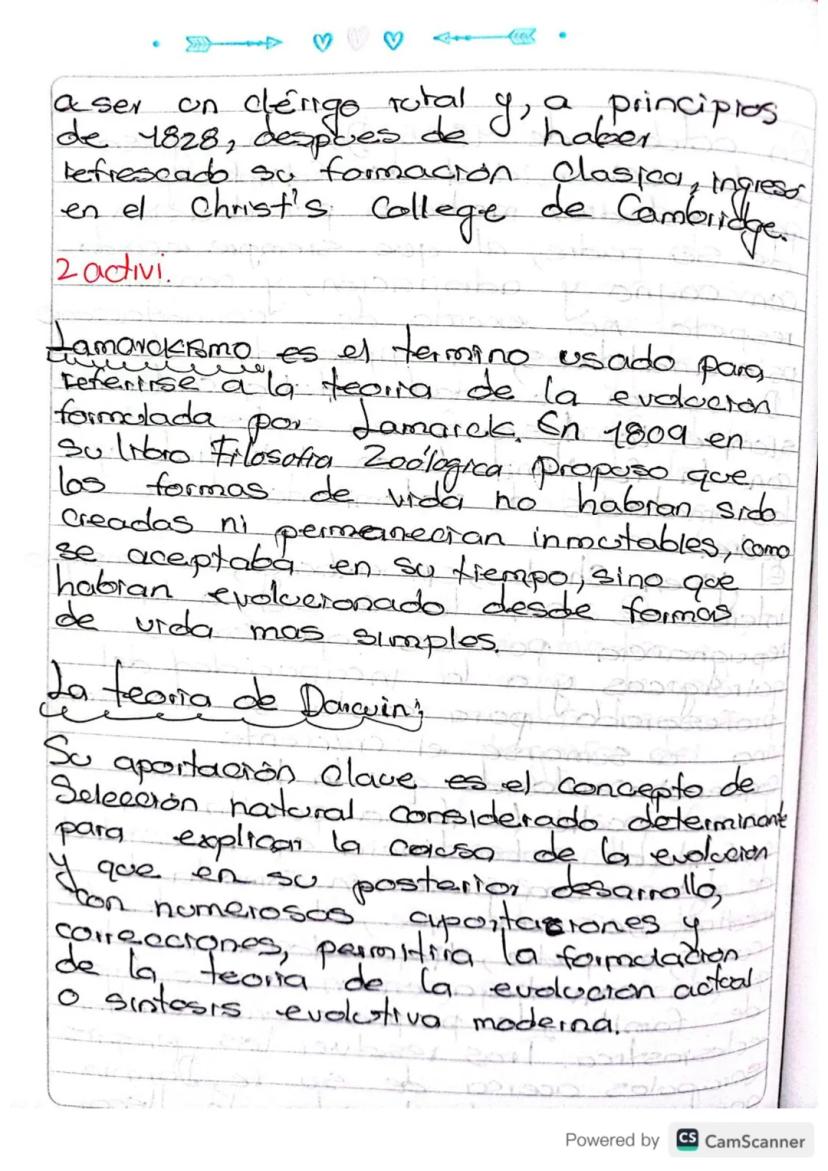 a ser un clérigo rural y, a principios
de 1828, despues de haber
refrescado su formación clasica, ingreso
en el Christ's College de Cambridge.
2 activi.
Lamarckismo es el termino usado para
referirse a la teoria de la evolucion
formulada por Lamarck. En 1809 en
su libro Filosofia Zoólogica propuso que
las formas de vida no habian sido
creadas ni permanecian inmutables, como
se aceptaba en su tiempo, sino que
habian evolucionado desde formas
de vida mas simples.
La teoria de Darwin;
Su aportación clave es el concepto de
Selección natural considerado determinante
para explicar la causa de la evolucion
y que en su posterior desarrollo,
con numerosos aportaciones y
correcciones, permitiria la formulación
de la teoria de la evolucion actual
o sintesis evolutiva moderna.
Powered by CS CamScanner